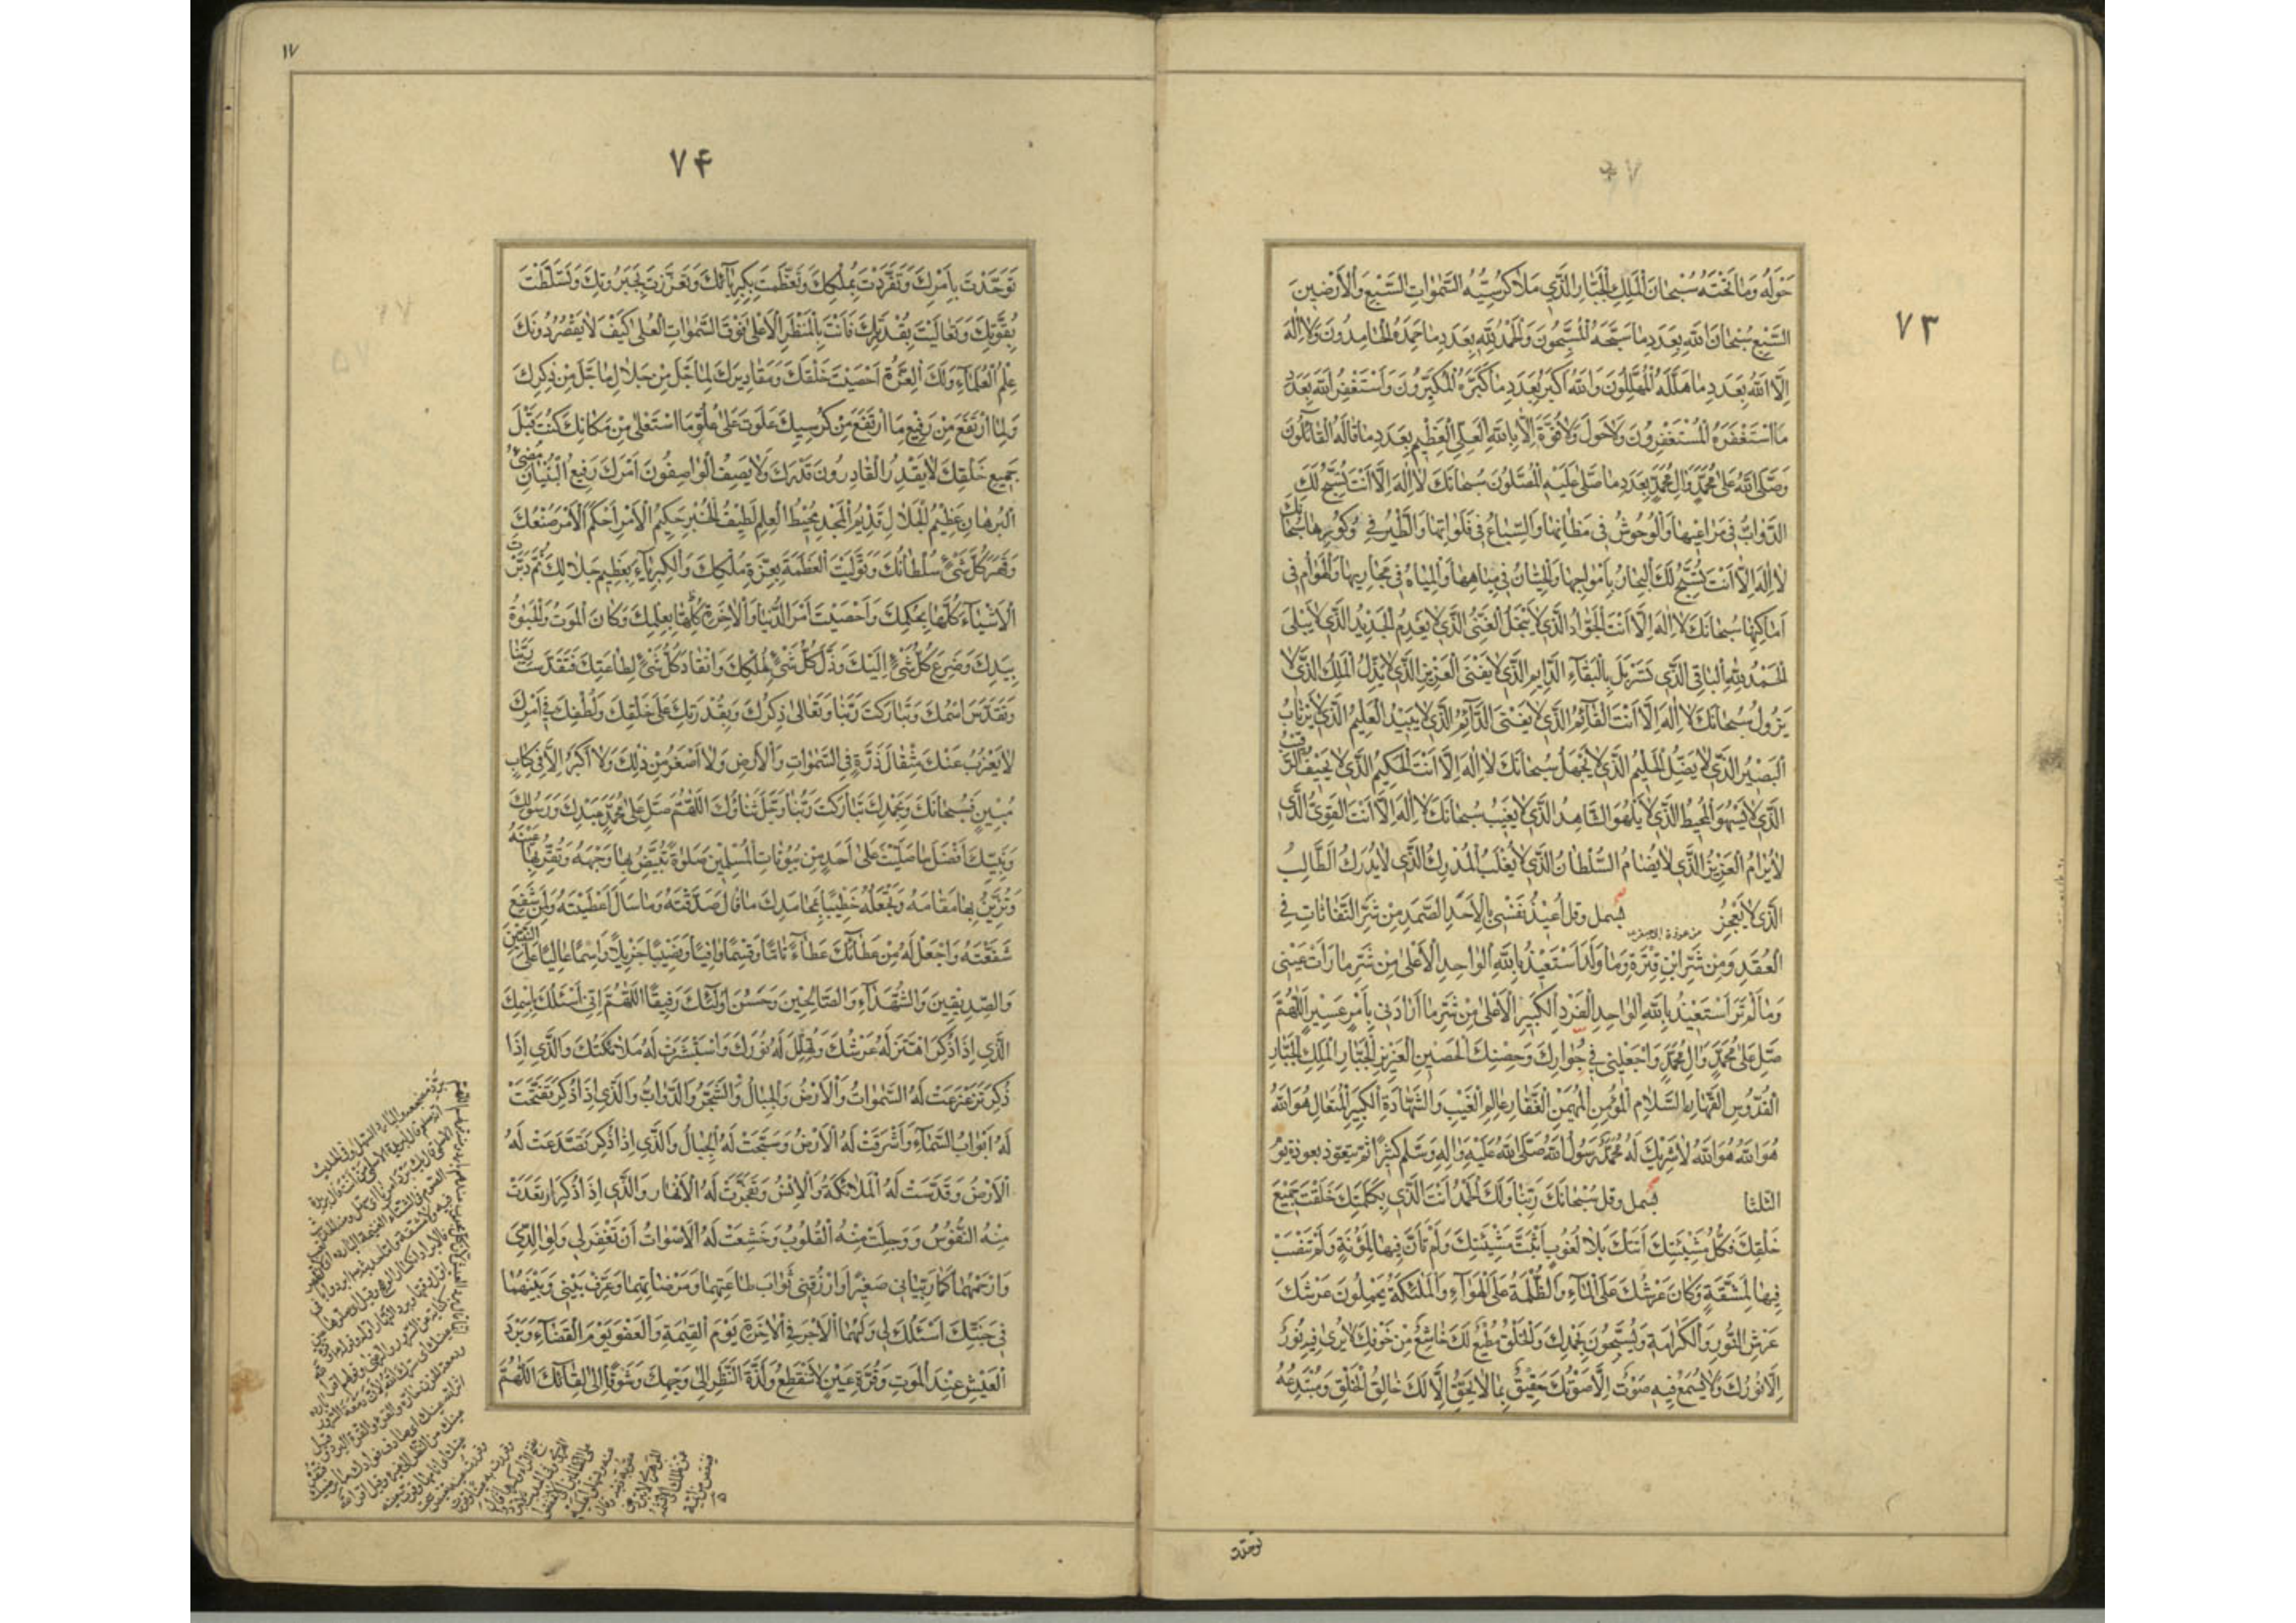 ٧٣
حَوْلَهُ وَمَا تَحْتَهُ سُبْحَانَ الْمَلِكِ الْجَبَّارِ الَّذِي مَلَأَ كُرْسِيُّهُ السَّمٰوَاتِ السَّبْعَ وَالْأَرَضِينَ
السَّبْعَ سُبْحَانَ اللّٰهِ بِعَدَدِ مَا سَبَّحَهُ الْمُسَبِّحُونَ وَالْحَمْدُ لِلّٰهِ بِعَدَدِ مَا حَمِدَهُ الْحَامِدُونَ وَلَا إِلٰهَ
إِلَّا اللّٰهُ بِعَدَدِ مَا هَلَّلَهُ الْمُهَلِّلُونَ وَاللّٰهُ أَكْبَرُ بِعَدَدِ مَا كَبَّرَهُ الْمُكَبِّرُونَ وَأَسْتَغْفِرُ اللّٰهَ بِعَدَدِ
مَا اسْتَغْفَرَهُ الْمُسْتَغْفِرُونَ وَلَا حَوْلَ وَلَا قُوَّةَ إِلَّا بِاللّٰهِ الْعَلِيِّ الْعَظِيمِ بِعَدَدِ مَا قَالَهُ الْقَائِلُونَ
وَصَلَّى اللّٰهُ عَلَى مُحَمَّدٍ وَآلِ مُحَمَّدٍ بِعَدَدِ مَا صَلَّى عَلَيْهِ الْمُصَلُّونَ سُبْحَانَكَ لَا إِلٰهَ إِلَّا أَنْتَ تُسَبِّحُ لَكَ
الدَّوَابُّ فِي مَرَاعِيهَا وَالْوُحُوشُ فِي مَظَانِّهَا وَالسِّبَاعُ فِي فَلَوَاتِهَا وَالطَّيْرُ فِي وُكُورِهَا سُبْحَانَكَ
لَا إِلٰهَ إِلَّا أَنْتَ تُسَبِّحُ لَكَ الْبِحَارُ بِأَمْوَاجِهَا وَالْحِيتَانُ فِي مِيَاهِهَا وَالْمِيَاهُ فِي مَجَارِيهَا وَالْهَوَامُّ فِي
أَمَاكِنِهَا سُبْحَانَكَ لَا إِلٰهَ إِلَّا أَنْتَ الْجَوَادُ الَّذِي لَا يَبْخَلُ الْغَنِيُّ الَّذِي لَا يَعْدِمُ الْجَدِيدُ الَّذِي لَا يَبْلَى
الْحَمْدُ لِلّٰهِ الْبَاقِي الَّذِي تَسَرْبَلَ بِالْبَقَاءِ الدَّائِمِ الَّذِي لَا يَفْنَى الْعَزِيزِ الَّذِي لَا يَذِلُّ الْمَلِكُ الَّذِي لَا
يَزُولُ سُبْحَانَكَ لَا إِلٰهَ إِلَّا أَنْتَ الْقَائِمُ الَّذِي لَا يَفْنَى الدَّائِمُ الَّذِي لَا يَبِيدُ الْعَلِيمُ الَّذِي لَا يَرْتَابُ
الْبَصِيرُ الَّذِي لَا يَضِلُّ الْحَلِيمُ الَّذِي لَا يَجْهَلُ سُبْحَانَكَ لَا إِلٰهَ إِلَّا أَنْتَ الْحَكِيمُ الَّذِي لَا يَحِيفُ الرَّقِيبُ
الَّذِي لَا يَسْهُو الْمُحِيطُ الَّذِي لَا يَلْهُو الشَّاهِدُ الَّذِي لَا يَغِيبُ سُبْحَانَكَ لَا إِلٰهَ إِلَّا أَنْتَ الْقَوِيُّ الَّذِي
لَا يُرَامُ الْعَزِيزُ الَّذِي لَا يُضَامُ السُّلْطَانُ الَّذِي لَا يُغْلَبُ الْمُدْرِكُ الَّذِي لَا يُدْرَكُ الطَّالِبُ
الَّذِي لَا يَعْجِزُ بسمل وقل أُعِيذُ نَفْسِي بِالْأَحَدِ الصَّمَدِ مِنْ شَرِّ النَّفَّاثَاتِ فِي
الْعُقَدِ وَمِنْ شَرِّ ابْنِ قِتْرَةَ وَمَا وَلَدَ أَسْتَعِيذُ بِاللّٰهِ الْوَاحِدِ الْأَعْلَى مِنْ شَرِّ مَا رَأَتْ عَيْنِي
وَمَا لَمْ تَرَ أَسْتَعِيذُ بِاللّٰهِ الْوَاحِدِ الْفَرْدِ الْكَبِيرِ الْأَعْلَى مِنْ شَرِّ مَا أَرَادَنِي بِأَمْرٍ عَسِيرٍ اللّٰهُمَّ
صَلِّ عَلَى مُحَمَّدٍ وَآلِ مُحَمَّدٍ وَاجْعَلْنِي فِي جِوَارِكَ وَحِصْنِكَ الْحَصِينِ الْعَزِيزِ الْجَبَّارِ الْمَلِكِ الْجَبَّارِ
الْقُدُّوسِ الْقَهَّارِ السَّلَامِ الْمُؤْمِنِ الْمُهَيْمِنِ الْغَفَّارِ عَالِمِ الْغَيْبِ وَالشَّهَادَةِ الْكَبِيرِ الْمُتَعَالِ هُوَ اللّٰهُ
هُوَ اللّٰهُ هُوَ اللّٰهُ لَا شَرِيكَ لَهُ مُحَمَّدٌ رَسُولُ اللّٰهِ صَلَّى اللّٰهُ عَلَيْهِ وَآلِهِ وَسَلَّمَ كَثِيرًا ثم يتعوذ بعوذة يوم
الثلثا بسمل وقل سُبْحَانَكَ رَبَّنَا وَلَكَ الْحَمْدُ أَنْتَ الَّذِي بِكَلِمَتِكَ خَلَقْتَ جَمِيعَ
خَلْقِكَ فَكُلُّ مَشِيَّتِكَ أَتَتْكَ بِلَا لُغُوبٍ أَثْبَتَّ مَشِيَّتَكَ وَلَمْ تَأَنَّ فِيهَا لِمَؤُنَةٍ وَلَمْ تَنْصَبْ
فِيهَا لِمَشَقَّةٍ وَكَانَ عَرْشُكَ عَلَى الْمَاءِ وَالظُّلْمَةُ عَلَى الْهَوَاءِ وَالْمَلٰئِكَةُ يَحْمِلُونَ عَرْشَكَ
عَرْشَ النُّورِ وَالْكَرَامَةِ وَيُسَبِّحُونَ بِحَمْدِكَ وَالْخَلْقُ مُطِيعٌ لَكَ خَاشِعٌ مِنْ خَوْفِكَ لَا يُرَى فِيهِ نُورٌ
إِلَّا نُورُكَ وَلَا يُسْمَعُ فِيهِ صَوْتٌ إِلَّا صَوْتُكَ حَقِيقٌ بِمَا لَا يَحِقُّ إِلَّا لَكَ خَالِقُ الْخَلْقِ وَمُبْتَدِعُهُ
توحدت
١٧
٧۴
تَوَحَّدْتَ بِأَمْرِكَ وَتَفَرَّدْتَ بِمُلْكِكَ وَتَعَظَّمْتَ بِكِبْرِيَائِكَ وَتَعَزَّزْتَ بِجَبَرُوتِكَ وَتَسَلَّطْتَ
بِقُوَّتِكَ وَتَعَالَيْتَ بِقُدْرَتِكَ فَأَنْتَ بِالْمَنْظَرِ الْأَعْلَى فَوْقَ السَّمٰوَاتِ الْعُلَى كَيْفَ لَا يَقْصُرُ دُونَكَ
عِلْمُ الْعُلَمَاءِ وَلَكَ الْعِزَّةُ أَحْصَيْتَ خَلْقَكَ وَمَقَادِيرَكَ لِمَا جَلَّ مِنْ جَلَالِ مَا جَلَّ مِنْ ذِكْرِكَ
وَلِمَا ارْتَفَعَ مِنْ رَفِيعِ مَا ارْتَفَعَ مِنْ كُرْسِيِّكَ عَلَوْتَ عَلَى عُلُوِّ مَا اسْتَعْلَى مِنْ مَكَانِكَ كُنْتَ قَبْلَ
جَمِيعِ خَلْقِكَ لَا يَقْدِرُ الْقَادِرُونَ قَدْرَكَ وَلَا يَصِفُ الْوَاصِفُونَ أَمْرَكَ رَفِيعُ الْبُنْيَانِ مُضِيءُ
الْبُرْهَانِ عَظِيمُ الْجَلَالِ قَدِيمُ الْمَجْدِ مُحِيطُ الْعِلْمِ لَطِيفُ الْخُبْرِ حَكِيمُ الْأَمْرِ أَحْكَمَ الْأَمْرَ صُنْعُكَ
وَقَهَرَ كُلَّ شَيْءٍ سُلْطَانُكَ وَتَوَلَّيْتَ الْعَظَمَةَ بِعِزَّةِ مُلْكِكَ وَالْكِبْرِيَاءَ بِعَظِيمِ جَلَالِكَ ثُمَّ دَبَّرْتَ
الْأَشْيَاءَ كُلَّهَا بِحُكْمِكَ وَأَحْصَيْتَ أَمْرَ الدُّنْيَا وَالْآخِرَةِ كُلِّهَا بِعِلْمِكَ وَكَانَ الْمَوْتُ وَالْحَيٰوةُ
بِيَدِكَ وَضَرَعَ كُلُّ شَيْءٍ إِلَيْكَ وَذَلَّ كُلُّ شَيْءٍ لِمُلْكِكَ وَانْقَادَ كُلُّ شَيْءٍ لِطَاعَتِكَ فَتَقَدَّسْتَ رَبَّنَا
وَتَقَدَّسَ اسْمُكَ وَتَبَارَكْتَ رَبَّنَا وَتَعَالَى ذِكْرُكَ وَبِقُدْرَتِكَ عَلَى خَلْقِكَ وَلُطْفِكَ فِي أَمْرِكَ
لَا يَعْزُبُ عَنْكَ مِثْقَالُ ذَرَّةٍ فِي السَّمٰوَاتِ وَالْأَرْضِ وَلَا أَصْغَرُ مِنْ ذٰلِكَ وَلَا أَكْبَرُ إِلَّا فِي كِتَابٍ
مُبِينٍ فَسُبْحَانَكَ وَبِحَمْدِكَ تَبَارَكْتَ رَبَّنَا وَجَلَّ ثَنَاؤُكَ اللّٰهُمَّ صَلِّ عَلَى مُحَمَّدٍ عَبْدِكَ وَرَسُولِكَ
وَنَبِيِّكَ أَفْضَلَ مَا صَلَّيْتَ عَلَى أَحَدٍ مِنْ بُيُوتَاتِ الْمُسْلِمِينَ صَلٰوةً تُبَيِّضُ بِهَا وَجْهَهُ وَتُقِرُّ بِهَا عَيْنَهُ
وَتُزَيِّنُ بِهَا مَقَامَهُ وَتَجْعَلُهُ خَطِيبًا بِمَحَامِدِكَ مَا قَالَ صَدَّقْتَهُ وَمَا سَأَلَ أَعْطَيْتَهُ وَلِمَنْ شَفَعَ
شَفَّعْتَهُ وَاجْعَلْ لَهُ مِنْ عَطَائِكَ عَطَاءً تَامًّا وَقِسْمًا وَافِيًا وَنَصِيبًا جَزِيلًا وَاسْمًا عَالِيًا عَلَى النَّبِيِّينَ
وَالصِّدِّيقِينَ وَالشُّهَدَاءِ وَالصَّالِحِينَ وَحَسُنَ أُولٰئِكَ رَفِيقًا اللّٰهُمَّ إِنِّي أَسْئَلُكَ بِاسْمِكَ
الَّذِي إِذَا ذُكِرَ اهْتَزَّ لَهُ عَرْشُكَ وَتَهَلَّلَ لَهُ نُورُكَ وَاسْتَبْشَرَتْ لَهُ مَلَائِكَتُكَ وَالَّذِي إِذَا
ذُكِرَ تَزَعْزَعَتْ لَهُ السَّمٰوَاتُ وَالْأَرْضُ وَالْجِبَالُ وَالشَّجَرُ وَالدَّوَابُّ وَالَّذِي إِذَا ذُكِرَ تَفَتَّحَتْ
لَهُ أَبْوَابُ السَّمَاءِ وَأَشْرَقَتْ لَهُ الْأَرْضُ وَسَبَّحَتْ لَهُ الْجِبَالُ وَالَّذِي إِذَا ذُكِرَ تَصَدَّعَتْ لَهُ
الْأَرْضُ وَقَدَّسَتْ لَهُ الْمَلَائِكَةُ وَالْإِنْسُ وَتَفَجَّرَتْ لَهُ الْأَنْهَارُ وَالَّذِي إِذَا ذُكِرَ ارْتَعَدَتْ
مِنْهُ النُّفُوسُ وَوَجِلَتْ مِنْهُ الْقُلُوبُ وَخَشَعَتْ لَهُ الْأَصْوَاتُ أَنْ تَغْفِرَ لِي وَلِوَالِدَيَّ
وَارْحَمْهُمَا كَمَا رَبَّيَانِي صَغِيرًا وَارْزُقْنِي ثَوَابَ طَاعَتِهِمَا وَمَرْضَاتِهِمَا وَعَرِّفْ بَيْنِي وَبَيْنَهُمَا
فِي جَنَّتِكَ أَسْئَلُكَ لِي وَلَهُمَا الْأَجْرَ فِي الْآخِرَةِ يَوْمَ الْقِيٰمَةِ وَالْعَفْوَ يَوْمَ الْقَضَاءِ وَبَرْدَ
الْعَيْشِ عِنْدَ الْمَوْتِ وَقُرَّةَ عَيْنٍ لَا تَنْقَطِعُ وَلَذَّةَ النَّظَرِ إِلَى وَجْهِكَ وَشَوْقًا إِلَى لِقَائِكَ اللّٰهُمَّ